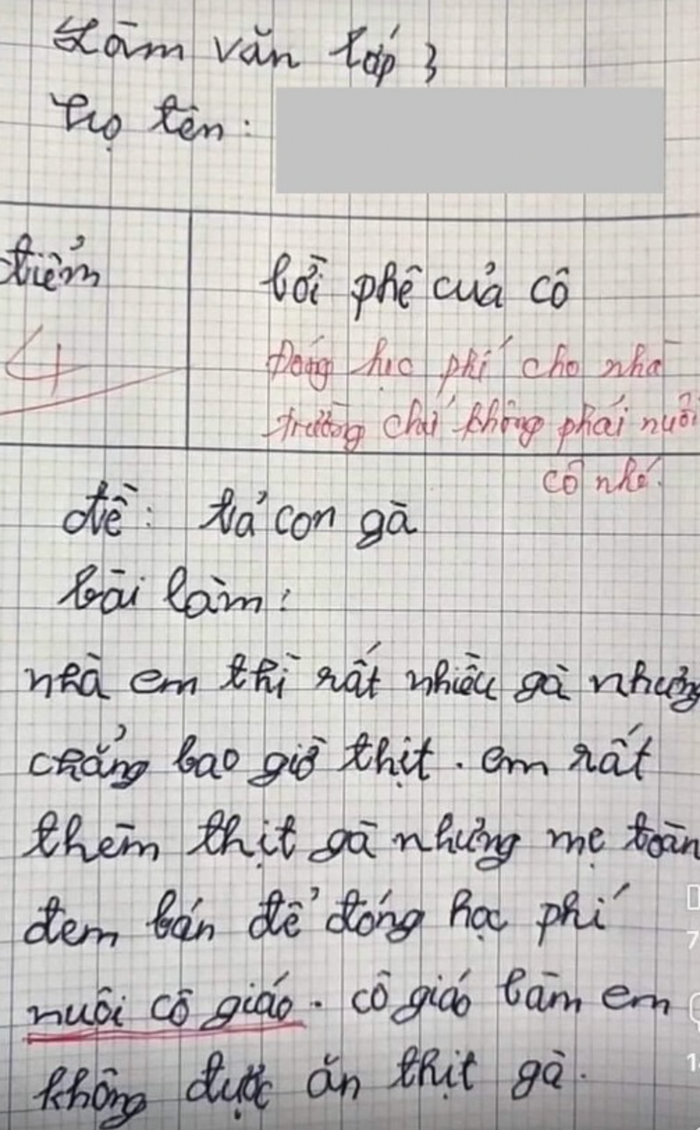 Lăm văn lớp 3
Họ tên:
điểm
lời phê của cô
4
Đóng học phí cho nhà
trường chứ không phải nuôi
cô nhé.
đề: tả con gà
bài làm:
nhà em thì rất nhiều gà nhưng
chẳng bao giờ thịt. em rất
thèm thịt gà nhưng mẹ toàn
đem bán để đóng học phí
nuôi cô giáo. cô giáo làm em
không được ăn thịt gà.